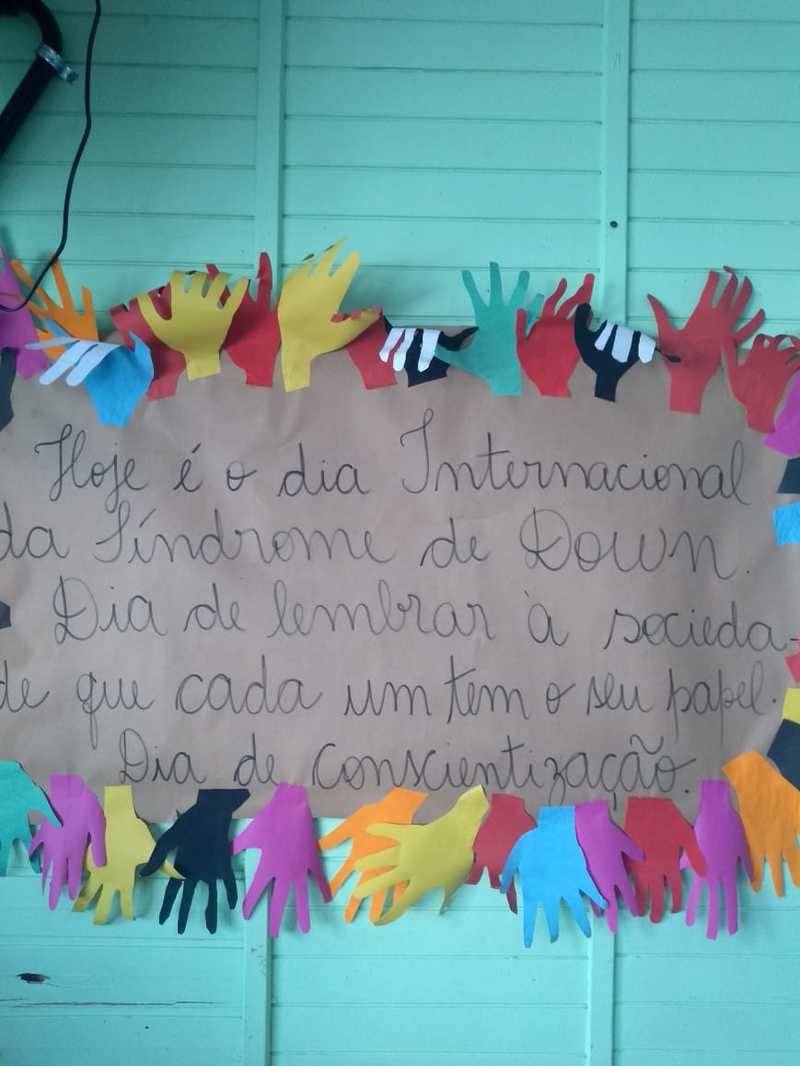 Hoje é o dia Internacional
da Síndrome de Down.
Dia de lembrar à socieda-
de que cada um tem o seu papel.
Dia de conscientização.